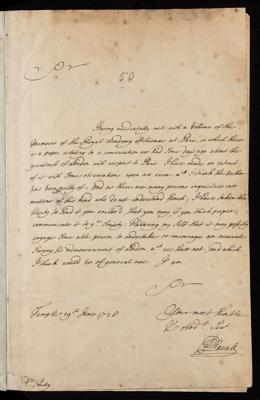 Sr
58
Having accidentally met with a Volume of the
Memoirs of the Royal Academy of Sciences at Paris, in which there
is a paper relating to a conversation we had some days ago about the
greatness of London with respect to Paris I have made an extract
of it with some observations upon an error wch. I think the author
has been guilty of. And as there are many persons inquisitive into
matters of this kind who do not understand french, I have taken the
liberty to send it you enclosed, that you may, if you think proper,
communicate it to yr. Society. Flattering my self that it may possibly
engage some able person to undertake or encourage an accurate
Survey & admeasurement of London wch. we have not, and which
I think would be of general use. I am
Sr
Your most humble
& obedt. Servt.
Davall
Temple 19th. June 1728